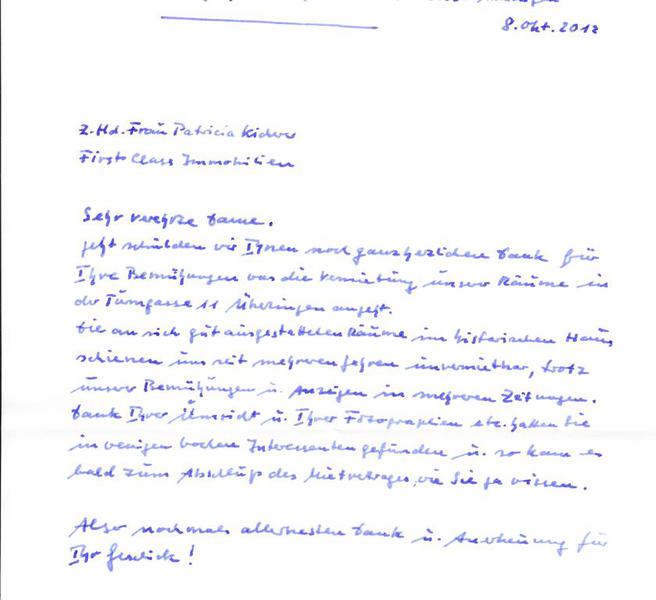 8. Okt. 2012
z. Hd. Frau Patricia Kidver
First Class Immobilien
Sehr verehrte Dame.
jetzt schulden wir Ihnen noch ganz herzlichen Dank für
Ihre Bemühungen was die Vermietung unser Räume in
der Turmgasse 11 Überlingen angeht.
Die an sich gut ausgestatteten Räume im historischen Haus
schienen uns seit mehreren Jahren unvermietbar, trotz
unser Bemühungen u. Anzeigen in mehreren Zeitungen.
Dank Ihrer Umsicht u. Ihrer Fotographien etc. hatten Sie
in wenigen Wochen Interessenten gefunden u. so kam es
bald zum Abschluß des Mietvertrages, wie Sie ja wissen.
Also nochmals allerbesten Dank u. Anerkennung für
Ihr Geschick!